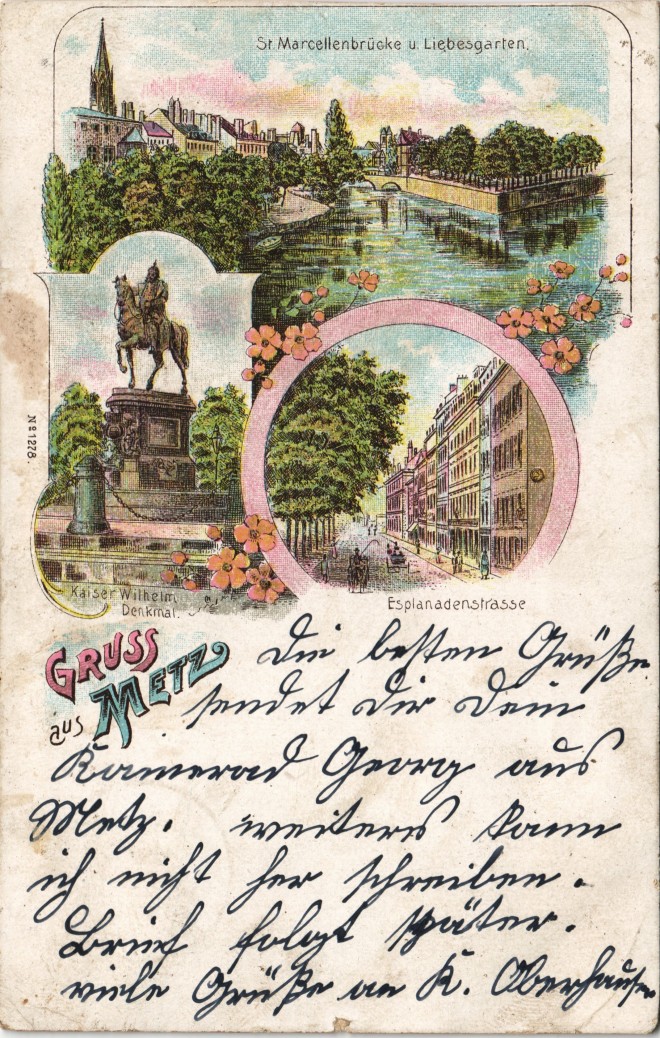 St. Marcellenbrücke u. Liebesgarten.
Nº 1278.
Kaiser Wilhelm
Denkmal.
Esplanadenstrasse
GRUSS
aus METZ
Die besten Grüße
sendet dir dein
Kamerad Georg aus
Metz. weiteres kann
ich nicht her schreiben.
Brief folgt später.
viele Grüße an K. Oberhauser